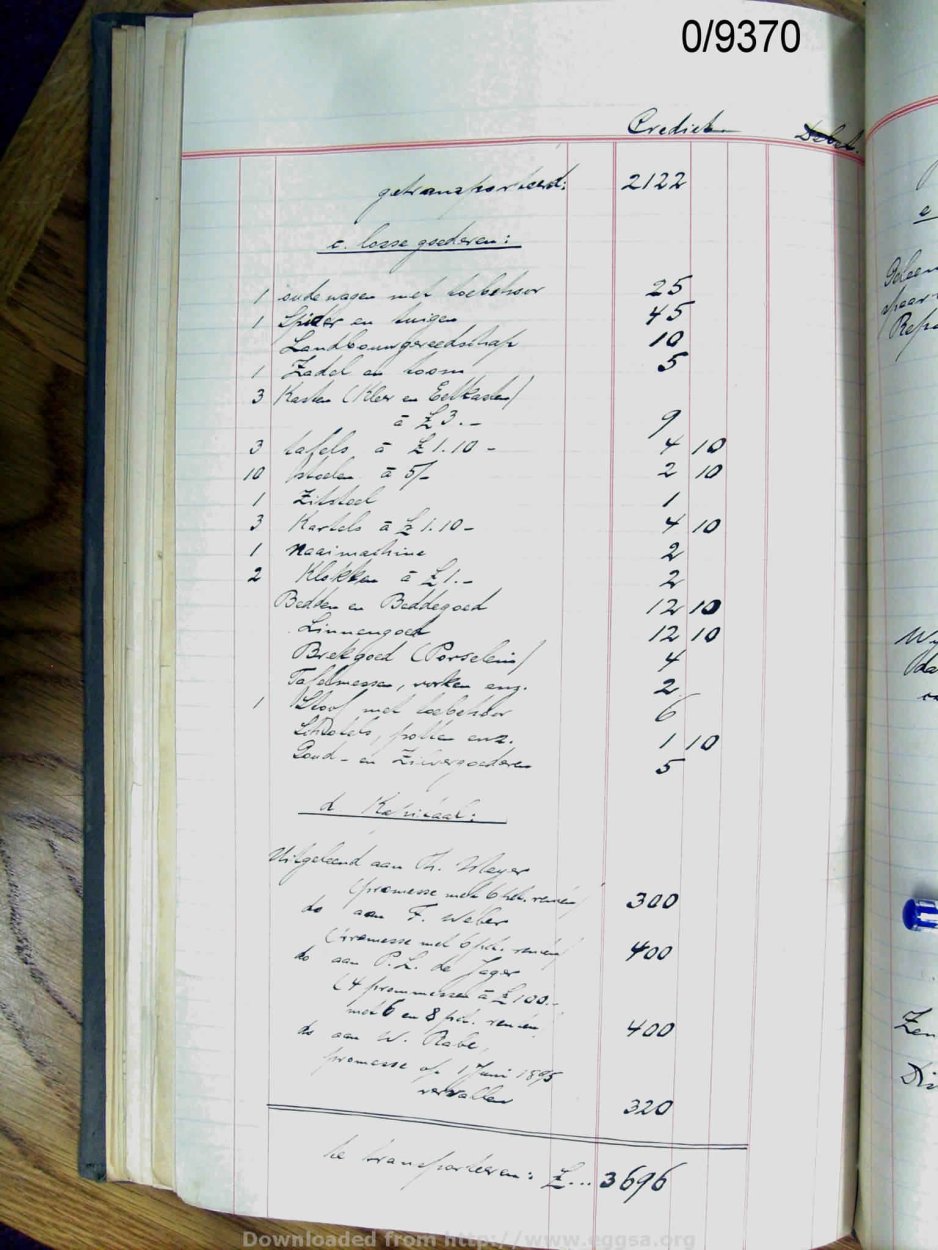 0/9370
Crediet Debet.
getransporteerd: 2122
c. losse goederen:
1 oude wagen met toebehoor 25
1 Spider en tuigen 45
Landbouwgereedschap 10
1 Zadel en toom 5
3 Kasten (Kler en Eetkasten)
à £3.- 9
3 tafels à £1.10- 4 10
10 stoelen à 5/- 2 10
1 Zitstoel 1
3 Kartels à £1.10- 4 10
1 Naaimachine 2
2 Klokken à £1.- 2
Bedden en Beddegoed 12 10
Linnengoed 12 10
Brekgoed (Porselein) 4
Tafelmessen, vorken enz. 2
1 Stoof met toebehoor 6
potten enz. 1 10
Goud- en Zilvergoederen 5
d. Kapitaal:
Uitgeleend aan Th. Meyer
(promesse met 6 pct. renten) 300
do aan F. Weber
(promesse met 6 pct. renten) 400
do aan P.L. de Jager
(4 promessen à £100.-
met 6 en 8 pct. renten 400
do aan W. Rabe,
promesse op 1 Juni 1895
vervallen 320
te transporteeren: £... 3696
e
Geleen
Zen
Downloaded from http://www.eggsa.org